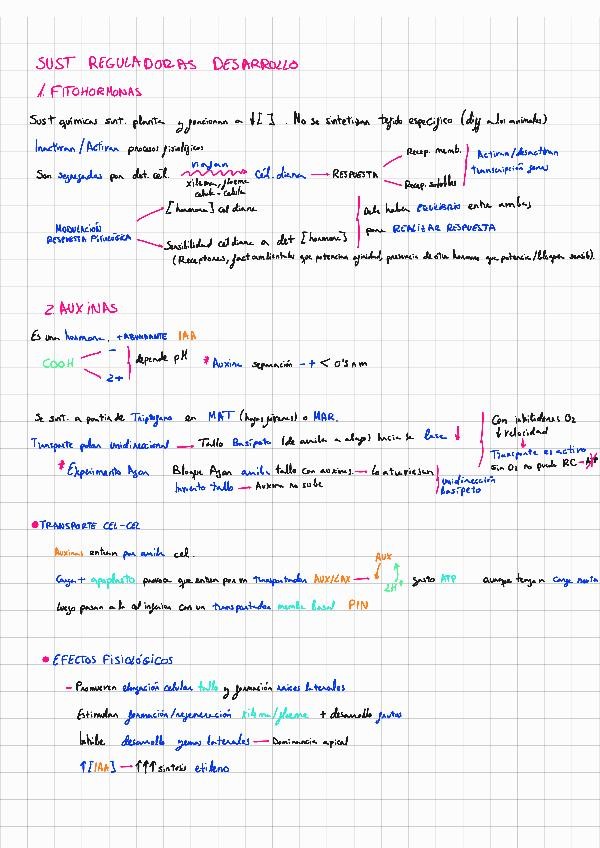 SUST REGULADORAS DESARROLLO
1. FITOHORMONAS
Sust químicas sint. planta y funcionan a ↓[ ]. No se sintetizan tejido específico (dif a los animales)
Inactivan/Activan procesos fisiológicos
Son segregadas por det. cél. viajan xilema, floema célula-célula cél. diana → RESPUESTA
Recep. memb.
Recep. solubles
Activan/desactivan transcripción genes
MODULACIÓN RESPUESTA FISIOLÓGICA
[hormona] cel diana
Sensibilidad cel diana a det [hormona]
Debe haber EQUILIBRIO entre ambas
para REALIZAR RESPUESTA
(Receptores, fact ambientales que potencian afinidad, presencia de otra hormona que potencia/bloquea sensib).
2. AUXINAS
Es una hormona, +ABUNDANTE IAA
COOH
-
2+
depende pH
* Auxina separación -+ < 0'5 nm
Se sint. a partir de Triptófano en MAT (hojas jóvenes) o MAR.
Transporte polar unidireccional → Tallo Basípeto (de arriba a abajo) hacia la base ↓
Con inhibidores O2
↓ velocidad
Transporte es activo
sin O2 no puede RC
* Experimento Agar Bloque Agar arriba tallo con auxinas →
Invierto tallo → Auxina no sube
Unidirección
basípeto
• TRANSPORTE CEL-CEL
Auxinas entran por arriba cel.
Carga + apoplasto provoca que entren por un transportador AUX/LAX → AUX 2H+ gasto ATP aunque tengan carga neutra
Luego pasan a la cel inferior con un transportador memb basal PIN
• EFECTOS FISIOLÓGICOS
- Promueven elongación celular tallo y formación raíces laterales
Estimulan formación/regeneración xilema/floema + desarrollo frutos
Inhibe desarrollo yemas laterales — Dominancia apical
↑[IAA] → ↑↑↑ síntesis etileno